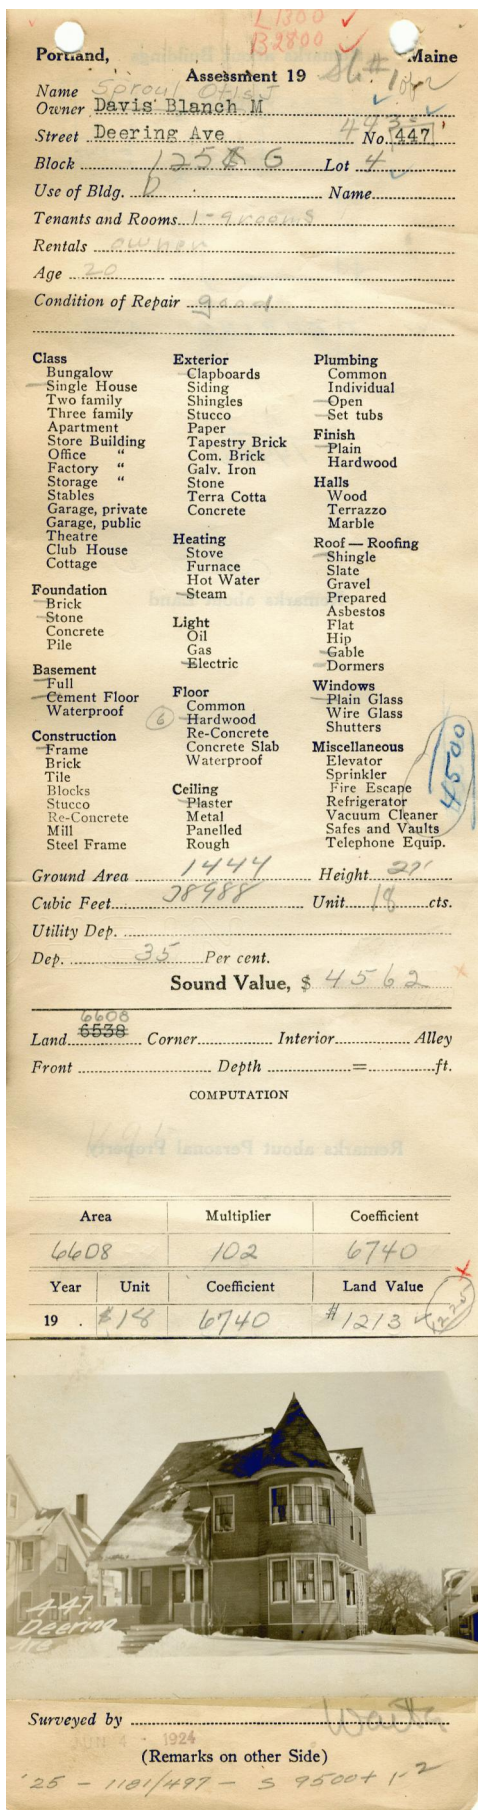 L 1300
B 2800
Portland, Maine
Assessment 19
Name Sproul Otis J
Owner Davis Blanch M
Street Deering Ave No. 447
443-
Block 125 G Lot 4
Use of Bldg. D Name
Tenants and Rooms 1-9 rooms
Rentals owner
Age 20
Condition of Repair good
Class
Bungalow
Single House
Two family
Three family
Apartment
Store Building
Office "
Factory "
Storage "
Stables
Garage, private
Garage, public
Theatre
Club House
Cottage
Foundation
Brick
Stone
Concrete
Pile
Basement
Full
Cement Floor
Waterproof
Construction
Frame
Brick
Tile
Blocks
Stucco
Re-Concrete
Mill
Steel Frame
Exterior
Clapboards
Siding
Shingles
Stucco
Paper
Tapestry Brick
Com. Brick
Galv. Iron
Stone
Terra Cotta
Concrete
Heating
Stove
Furnace
Hot Water
Steam
Light
Oil
Gas
Electric
Floor
Common
6 Hardwood
Re-Concrete
Concrete Slab
Waterproof
Ceiling
Plaster
Metal
Panelled
Rough
Plumbing
Common
Individual
Open
Set tubs
Finish
Plain
Hardwood
Halls
Wood
Terrazzo
Marble
Roof — Roofing
Shingle
Slate
Gravel
Prepared
Asbestos
Flat
Hip
Gable
Dormers
Windows
Plain Glass
Wire Glass
Shutters
Miscellaneous
Elevator
Sprinkler
Fire Escape
Refrigerator
Vacuum Cleaner
Safes and Vaults
Telephone Equip.
4500
Ground Area 1444 Height 27'
Cubic Feet 38988 Unit 18 cts.
Utility Dep.
Dep. 35 Per cent.
Sound Value, $ 4562
6608
Land 6538 Corner Interior Alley
Front Depth = ft.
COMPUTATION
Remarks about Personal Property
Area Multiplier Coefficient
6608 102 6740
Year Unit Coefficient Land Value
19 . $18 6740 #1213
447
Deering
Ave
Surveyed by
JUN 4 - 1924
(Remarks on other Side)
'25 - 1181/497 - S 9500+ 1-2